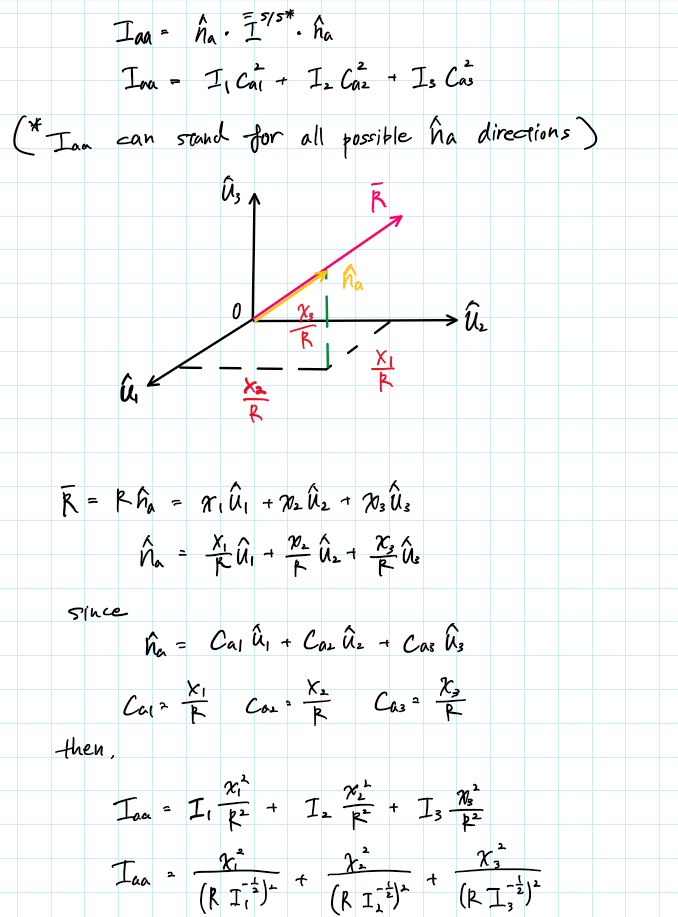 I_aa = n̂_a · Ī̄^{S/S*} · n̂_a
I_aa = I₁ C_a1² + I₂ C_a2² + I₃ C_a3²
(* I_aa can stand for all possible n̂_a directions)
Û₃
R̄
n̂_a
O
x₃/R
Û₂
x₁/R
Û₁
x₂/R
R̄ = R n̂_a = x₁ Û₁ + x₂ Û₂ + x₃ Û₃
n̂_a = x₁/R Û₁ + x₂/R Û₂ + x₃/R Û₃
since
n̂_a = C_a1 Û₁ + C_a2 Û₂ + C_a3 Û₃
C_a1 = x₁/R C_a2 = x₂/R C_a3 = x₃/R
then,
I_aa = I₁ x₁²/R² + I₂ x₂²/R² + I₃ x₃²/R²
I_aa = x₁²/(R I₁^{-1/2})² + x₂²/(R I₂^{-1/2})² + x₃²/(R I₃^{-1/2})²